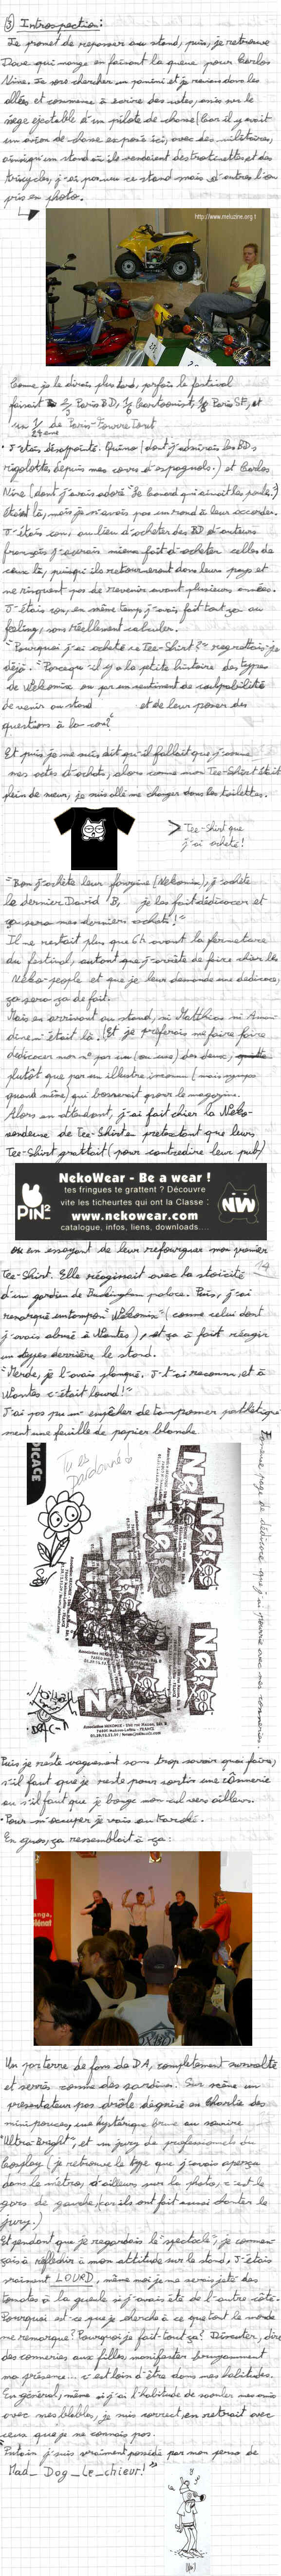 ③ Introspection:
Je promet de repasser au stand, puis, je retrouve
Dave qui mange en faisant la queue pour Carlos
Nine. Je vais chercher un panini et je reviens dans les
allées et commence à écrire des notes, assis sur le
siège éjectable d'un pilote de chasse (car il y avait
un avion de chasse exposé ici, avec des militaires,
ainsi qu'un stand où ils vendaient des trottinettes et des
tricycles, j'ai pas vu ce stand mais d'autres l'ont
pris en photo.
http://www.meluzine.org
Comme je le dirais plus tard, parfois le festival
faisait Paris BD, Cartoonist, Paris SF, et
un 1/24ème de Paris-Fourre Tout
• J'étais désappointé. Quino (dont j'admirais les BDs
rigolottes depuis mes cours d'espagnols.) et Carlos
Nine (dont j'avais adoré "Le Canard qui aimait les poules")
étaient là, mais je n'avais pas un rond à leur accorder.
J'étais con, au lieu d'acheter des BD d'auteurs
français j'aurais mieux fait d'acheter celles de
ceux là, puisqu'ils retourneront dans leurs pays et
ne risquent pas de revenir avant plusieurs années.
J'étais con, en même temps j'avais fait tout ça au
feeling, sans réellement calculer.
"Pourquoi j'ai acheté ce Tee-Shirt?" regrettais-je
déjà. "Parcequ'il y a la petite histoire des types
de Nekomix ou par un sentiment de culpabilité
de venir au stand et de leur poser des
questions à la con?"
Et puis je me suis dit qu'il fallait que j'assume
mes actes d'achats, alors comme mon Tee-Shirt était
plein de sueur, je suis allé me changer dans les toilettes.
> Tee-Shirt que
j'ai acheté!
"Bon j'achète leur fanzine (Nekomix), j'achète
le dernier David B, je les fait dédicacer et
ça sera mes derniers achats!"
Il ne restait plus que 6h avant la fermeture
du festival, autant que j'arrête de faire chier les
Neko-people et que je leur demande une dédicace,
ça sera ça de fait.
Mais en arrivant au stand, ni Matthias ni Aman-
dine n'était là! (Et je préferais me faire faire
dédicacer mon n° par un (ou une) des deux,
plutôt que par un illustre inconnu (mais sympa
quand même) qui bosserait pour le magazine.
Alors en attendant, j'ai fait chier la Neko-
vendeuse de Tee-Shirts pretextant que leurs
Tee-Shirt grattait (pour contredire leur pub)
PIN²
NekoWear - Be a wear !
tes fringues te grattent ? Découvre
vite les ticheurtes qui ont la Classe :
www.nekowear.com
catalogue, infos, liens, downloads....
NW
ou en essayant de leur refourguer mon premier
Tee-Shirt. Elle réagissait avec la stoïcité
d'un gardien de Buckingham palace. Puis, j'ai
remarqué un tampon "Nekomix" (comme celui dont
j'avais abusé à Nantes), et ça à fait réagir
un type derrière le stand.
"Merde, je l'avais planqué. J't'ai reconnu, et à
Nantes c'était lourd!"
J'ai pas pu m'empêcher de tamponner pathétique-
ment une feuille de papier blanche
DICACE
Tu es
pardonné!
Neko
Puis je reste vaguement sans trop savoir quoi faire,
s'il faut que je reste pour sortir une cônnerie
ou s'il faut que je bouge mon cul vers ailleurs.
• Pour m'occuper je vais au karaoké.
En gros, ça ressemblait à ça:
anga,
Glénat
Un parterre de fans de DA, complètement survolté
et serrés comme des sardines. Sur scène un
présentateur pas drôle déguisé en Charlie des
minipouces, une hystérique brune au sourire
"Ultra-Bright", et un jury de professionnels du
Cosplay (je retrouve le type que j'avais aperçu
dans le métro, d'ailleurs sur la photo, c'est le
gars de gauche, car ils ont fait aussi chanter le
jury.)
Et pendant que je regardais le "spectacle", je commen-
çais à réfléchir à mon attitude sur le stand, J'étais
vraiment LOURD, même moi je me serais jeté des
tomates à la gueule si j'avais été de l'autre côté.
Pourquoi est-ce que je cherche à ce que tout le monde
me remarque? Pourquoi je fait tout ça? Discuter, dire
des conneries aux filles, manifester bruyamment
ma présence... c'est loin d'être dans mes habitudes.
En général, même si j'ai l'habitude de saouler mes amis
avec mes blabla, je suis correct, en retrait avec
ceux que je ne connais pas.
"Putain j'suis vraiment possédé par mon perso de
Mad_Dog_Le_chieur!"